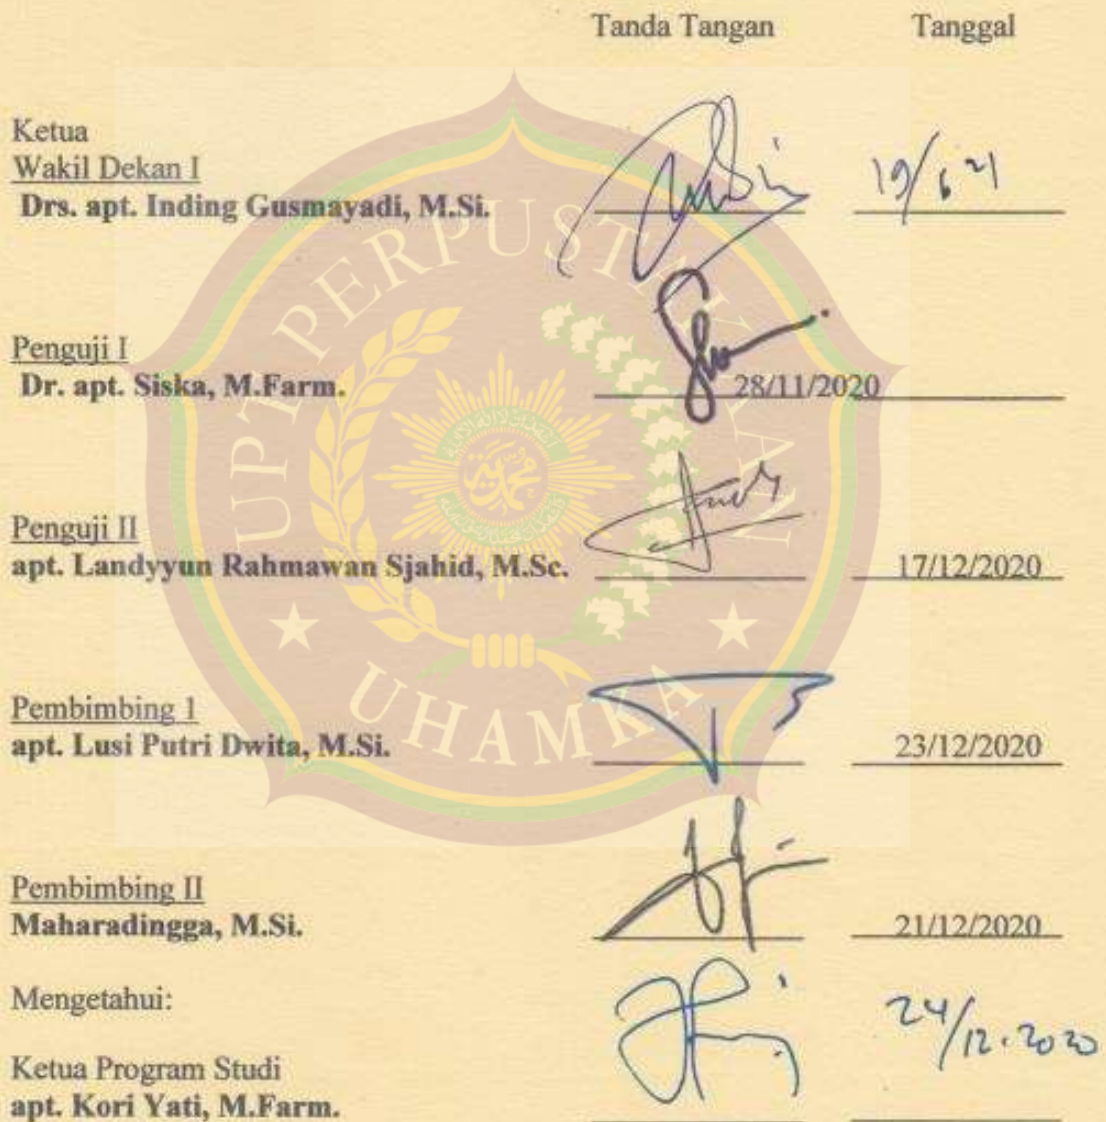 Tanda Tangan Tanggal
Ketua
Wakil Dekan I
Drs. apt. Inding Gusmayadi, M.Si. 19/6 21
Penguji I
Dr. apt. Siska, M.Farm. 28/11/2020
Penguji II
apt. Landyyun Rahmawan Sjahid, M.Sc. 17/12/2020
Pembimbing 1
apt. Lusi Putri Dwita, M.Si. 23/12/2020
Pembimbing II
Maharadingga, M.Si. 21/12/2020
Mengetahui:
24/12.2020
Ketua Program Studi
apt. Kori Yati, M.Farm.
UPT PERPUSTAKAAN
UHAMKA